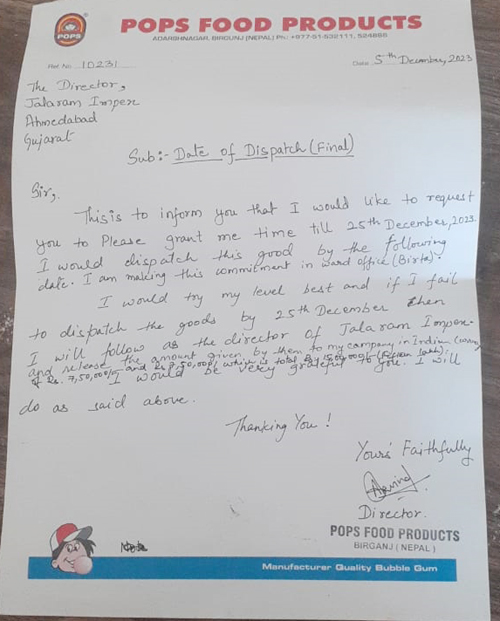 POPS
POPS FOOD PRODUCTS
ADARSHNAGAR, BIRGUNJ (NEPAL) Ph: +977-51-532111, 524885
Ref. No. 10231
Date 5th December, 2023
The Director,
Jalaram Impex
Ahmedabad
Gujarat
Sub:- Date of Dispatch (Final)
Sir,
This is to inform you that I would like to request
you to Please grant me time till 25th December, 2023.
I would dispatch this good by the following
date. I am making this commitment in ward office (Birta).
I would try my level best and if I fail
to dispatch the goods by 25th December then
I will follow as the director of Jalaram Impex.
and release the amount given by them to my company in Indian
of Rs. 7,50,000/- and Rs 7,50,000/- which is total Rs 15,00,000/-
I would be very grateful to you. I will
do as said above.
Thanking You !
Yours Faithfully
Director
POPS FOOD PRODUCTS
BIRGANJ ( NEPAL )
Manufacturer Quality Bubble Gum